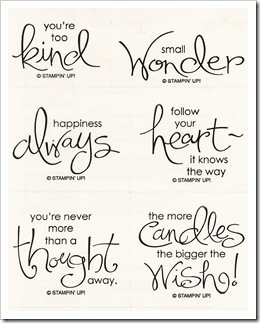 you're
too
kind
© STAMPIN' UP!
small
Wonder
© STAMPIN' UP!
happiness
always
© STAMPIN' UP!
follow
your
heart~
it knows
the way
© STAMPIN' UP!
you're never
more
than a
thought
away.
© STAMPIN' UP!
the more
Candles
the bigger the
Wish!
© STAMPIN' UP!